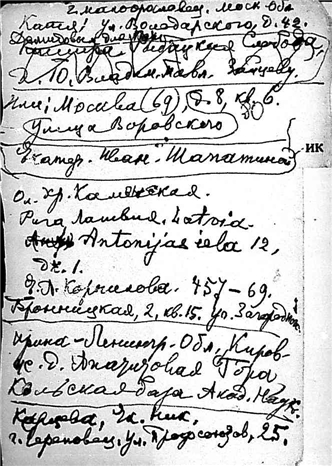 г. Малоярославец, Моск. Обл.
Катя! Ул. Володарского, д. 42.
Кашира Рыбацкая Слобода,
д. 10, Владим. Павл. Зайцеву.
Или: Москва (69), д. 8, кв. 6.
20
Улица Воровского
Екатер. Иван. Шапатиной
ИК
Ол. Хр. Каменская.
Рига Латвия. Latvia.
Antonijas iela 12,
дз. 1.
Корнилова. 457-69.
Бронницкая, 2, кв. 15. уг. Загородн.
Ирина - Ленингр. Обл., Киров-
ск. д. Апатитовая Гора
Кольская база Акад. Наук.
Карцева, Ек. Ник.
г. Череповец, ул. Профсоюзов, 25.